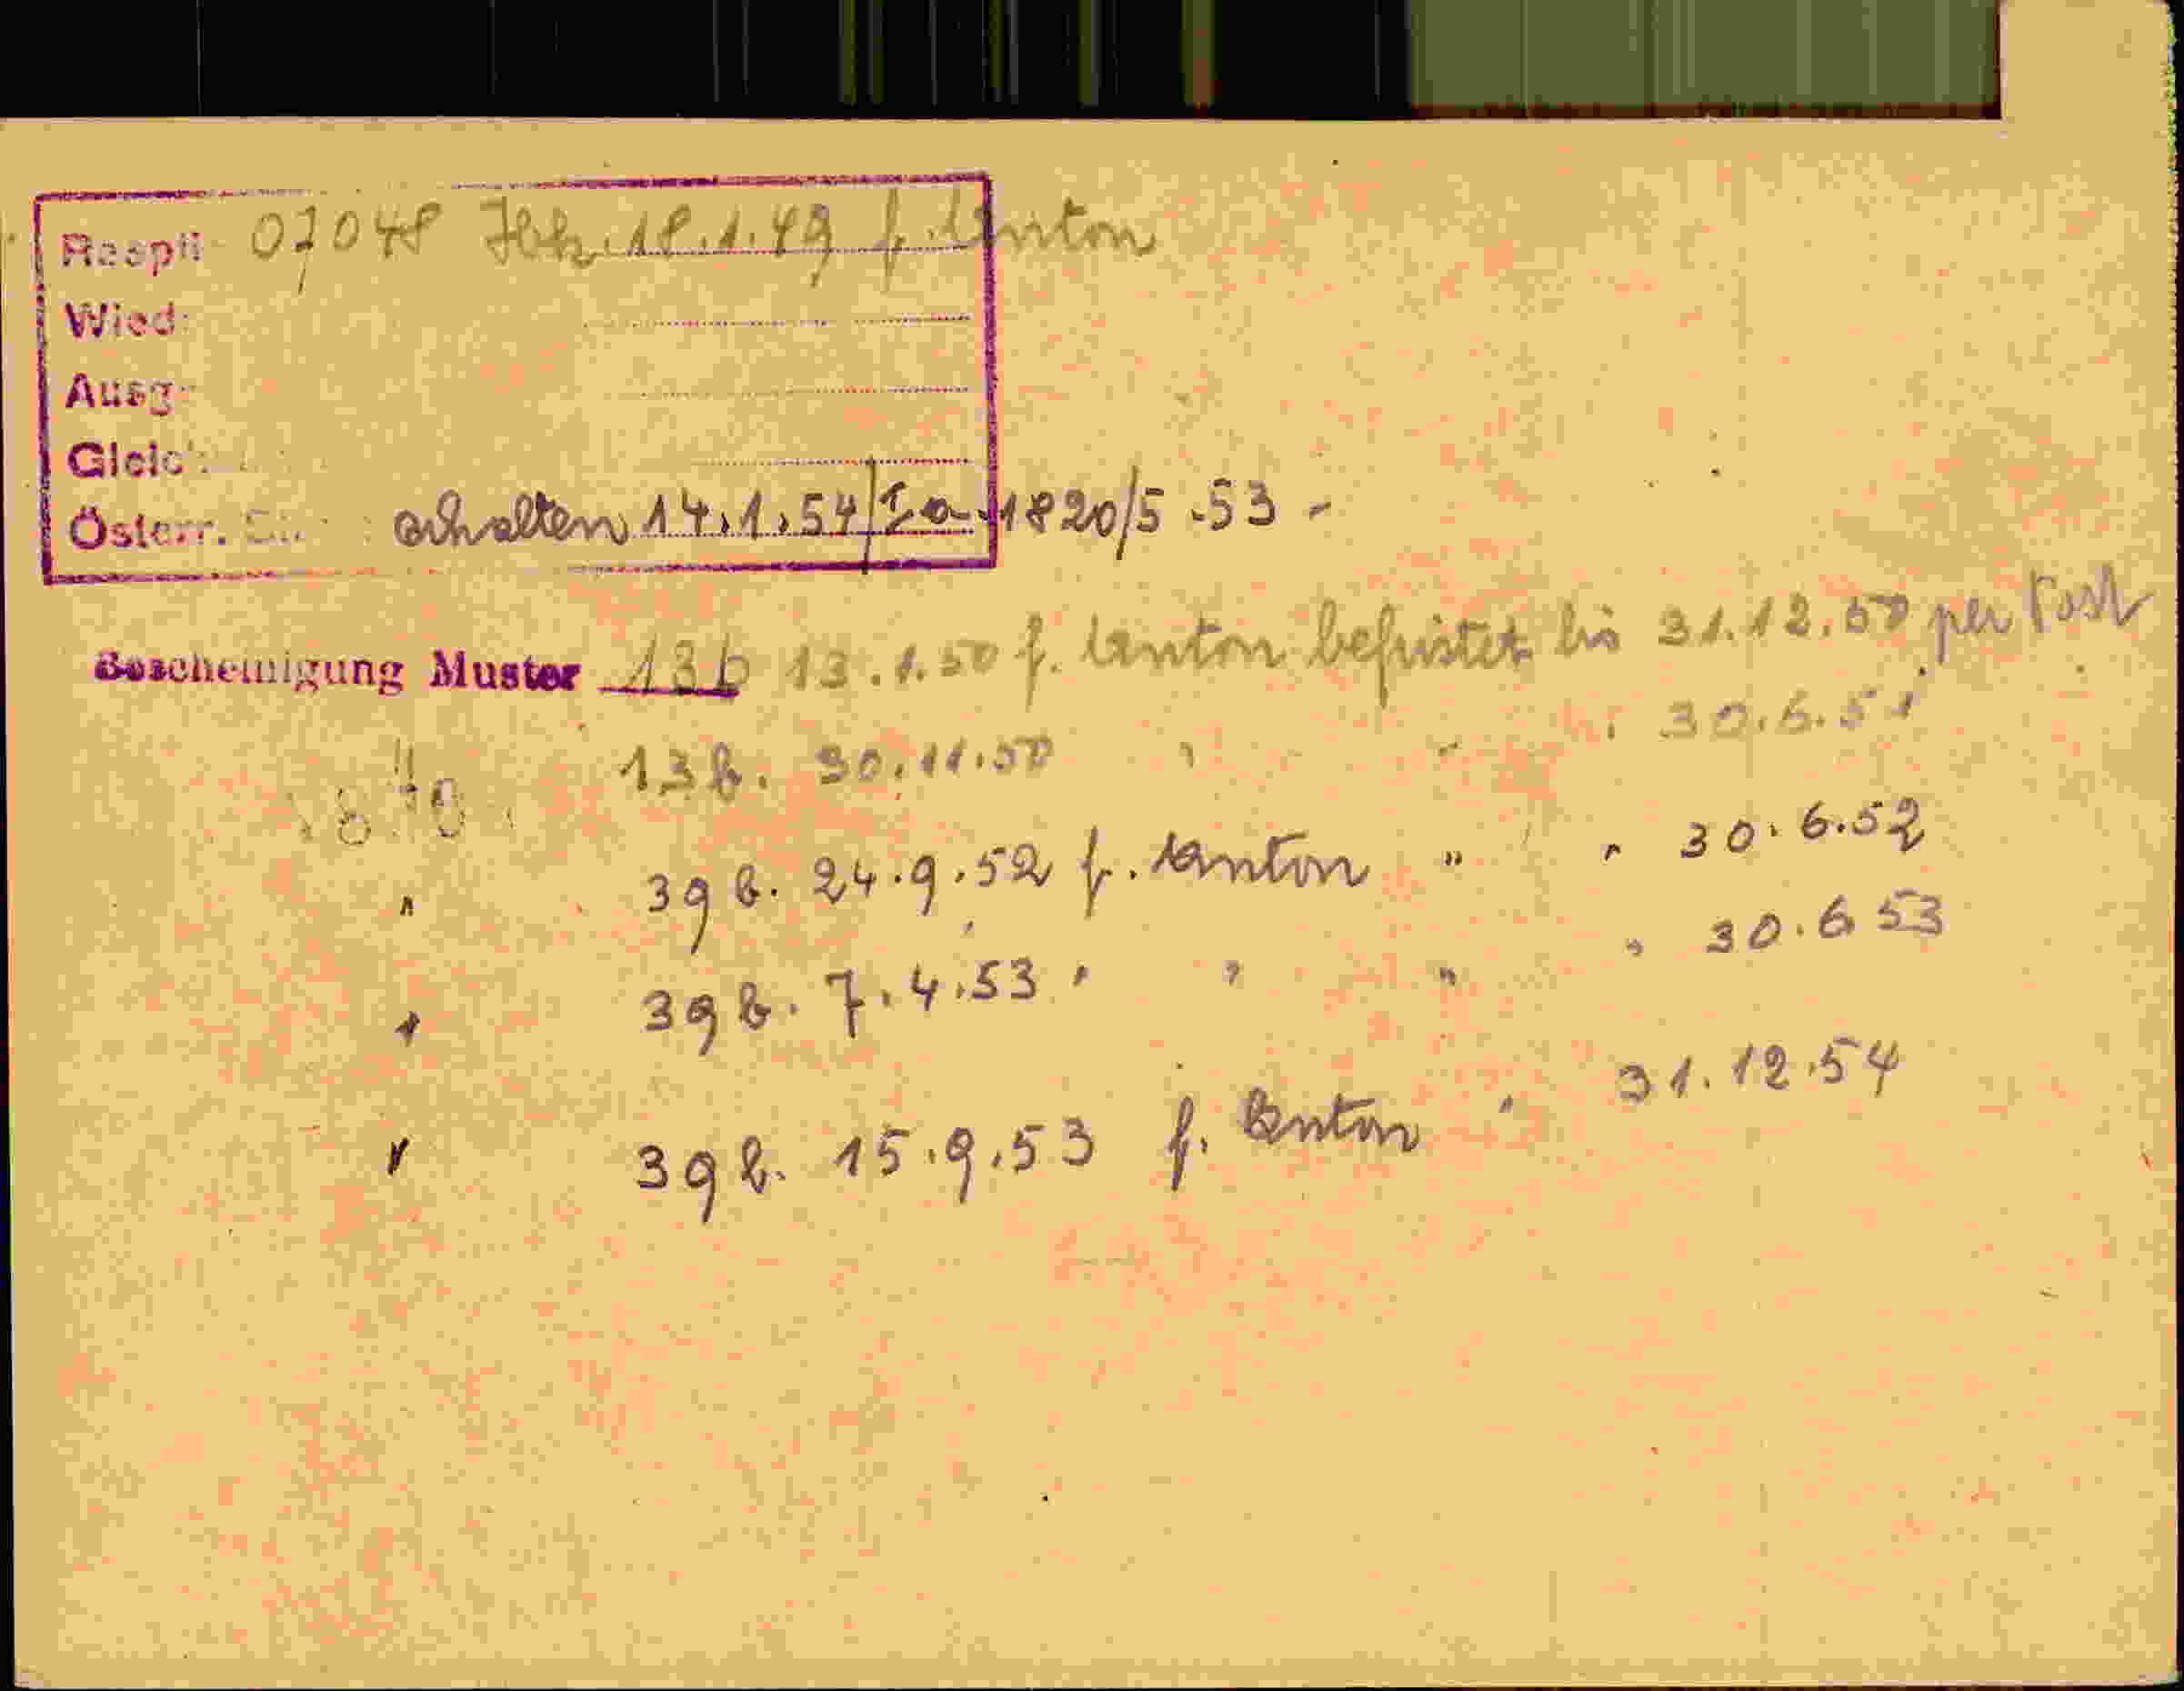 Raspti 07048 Hbk. 18.1.49 f. Anton
Wied:
Ausg:
Gleich:
Österr. erhalten 14.1.54/Ia-1820/5.53 -
Bescheinigung Muster 13b 13.1.50 f. Anton befristet bis 31.12.50 per Post
" 13b. 30.11.50 " " " 30.6.51
" 39b. 24.9.52 f. Anton " " 30.6.52
" 39b. 7.4.53 " " " " 30.6 53
" 39b. 15.9.53 f. Anton " 31.12.54